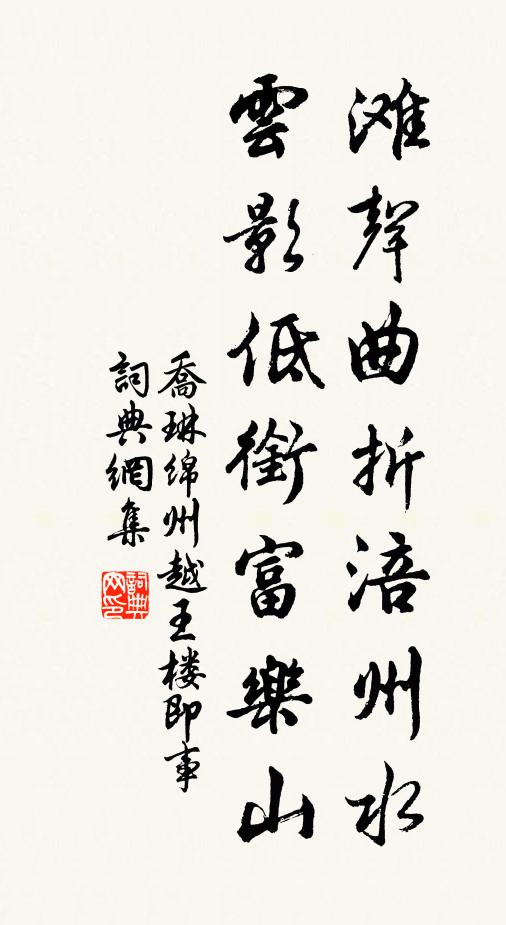 滩聲曲折涪州水
雲影低銜富樂山
喬琳綿州越王楼即事
詞典網集
詞典
网印